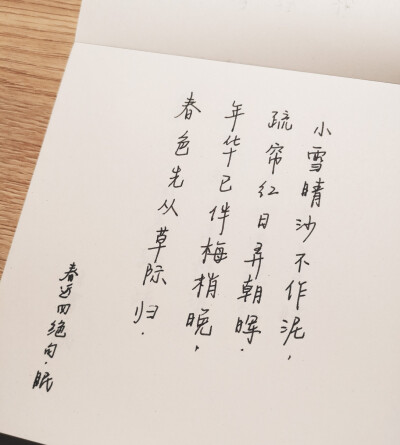 小雪晴沙不作泥，
疏帘红日弄朝晖．
年华已伴梅梢晚，
春色先从草际归．
春近四绝句．眠